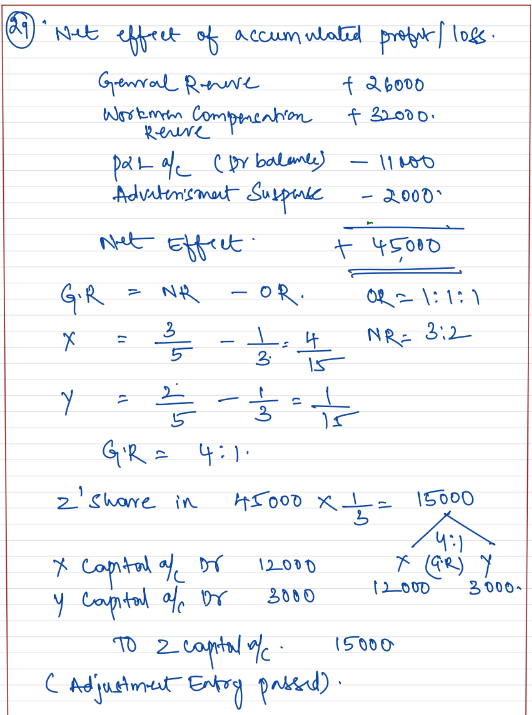 29 Net effect of accumulated profit / loss.
General Reserve + 26000
Workmen Compensation + 32000.
Reserve
P&L a/c (Dr balance) - 11000
Advertisment Suspense - 2000.
Net Effect. + 45,000
G.R = NR - OR. OR = 1:1:1
X = 3/5 - 1/3 = 4/15 NR = 3:2
Y = 2/5 - 1/3 = 1/15
G.R = 4:1.
Z's share in 45000 × 1/3 = 15000
4:1
X (G.R) Y
12000 3000.
X Capital a/c Dr 12000
Y Capital a/c Dr 3000
To Z capital a/c. 15000
(Adjustment Entry passed).